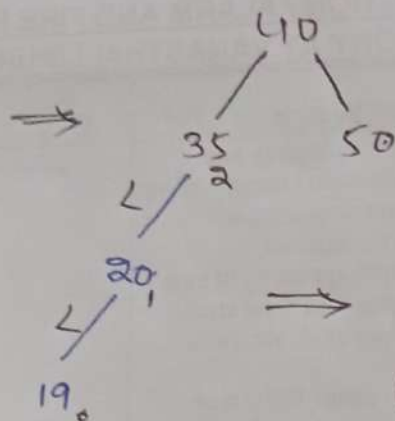 40
⇒ 35 50
2
L
20
1
L ⇒
19
0